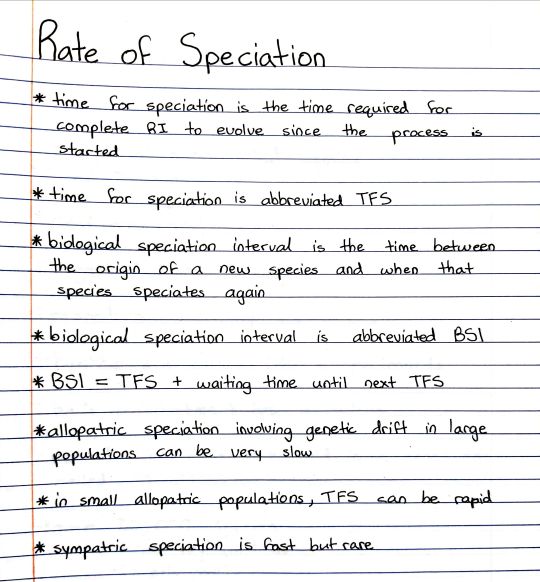 Rate of Speciation
* time for speciation is the time required for
complete RI to evolve since the process is
started
* time for speciation is abbreviated TFS
* biological speciation interval is the time between
the origin of a new species and when that
species speciates again
* biological speciation interval is abbreviated BSI
* BSI = TFS + waiting time until next TFS
* allopatric speciation involving genetic drift in large
populations can be very slow
* in small allopatric populations, TFS can be rapid
* sympatric speciation is fast but rare